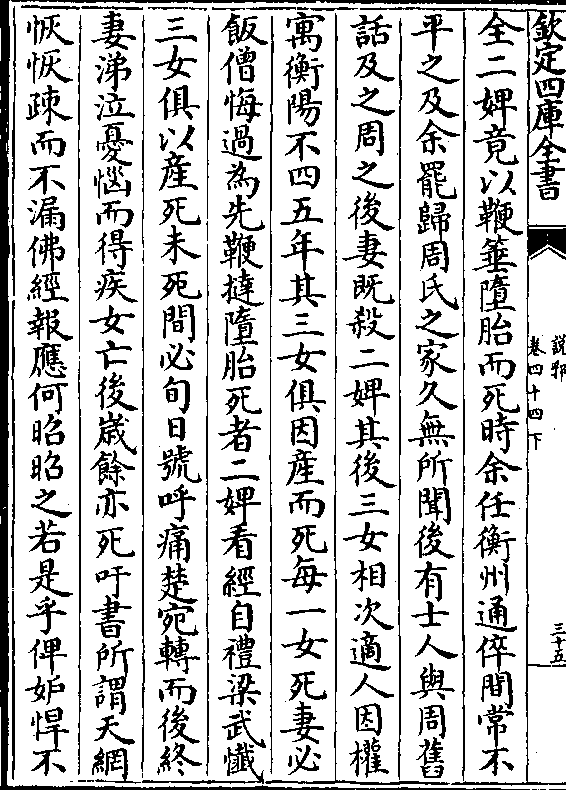 欽定四庫全書
說郛
卷四十四下
三十五
全二婢竟以鞭箠墮胎而死時余任衡州通倅間常不
平之及余罷歸周氏之家久無所聞後有士人與周舊
話及之周之後妻既殺二婢其後三女相次適人因權
寓衡陽不四五年其三女俱因産而死每一女死妻必
飯僧悔過為先鞭撻墮胎死者二婢看經自禮梁武懺
三女俱以産死未死間必旬日號呼痛楚宛轉而後終
妻涕泣憂惱而得疾女亡後歲餘亦死吁書所謂天網
恢恢疎而不漏佛經報應何昭昭之若是乎俾妒悍不